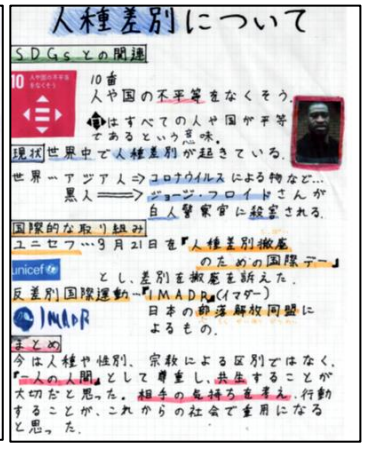 人種差別について
SDGsとの関連
10 人や国の不平等をなくそう
10番
人や国の不平等をなくそう。
はすべての人や国が平等
であるという意味。
現状 世界中で人種差別が起きている。
世界…アジア人⇒コロナウイルスによる物など…
黒人⇒ジョージ・フロイドさんが
白人警察官に殺害される。
国際的な取り組み
ユニセフ…3月21日を『人種差別撤廃
のための国際デー』
unicef
とし、差別を撤廃を訴えた。
反差別国際運動…『IMADR』(イマダー)
IMADR
日本の部落解放同盟に
よるもの。
まとめ
今は人種や性別、宗教による区別ではなく、
『一人の人間』として尊重し、共生することが
大切だと思った。相手の気持ちを考え、行動
することが、これからの社会で重用になる
と思った。